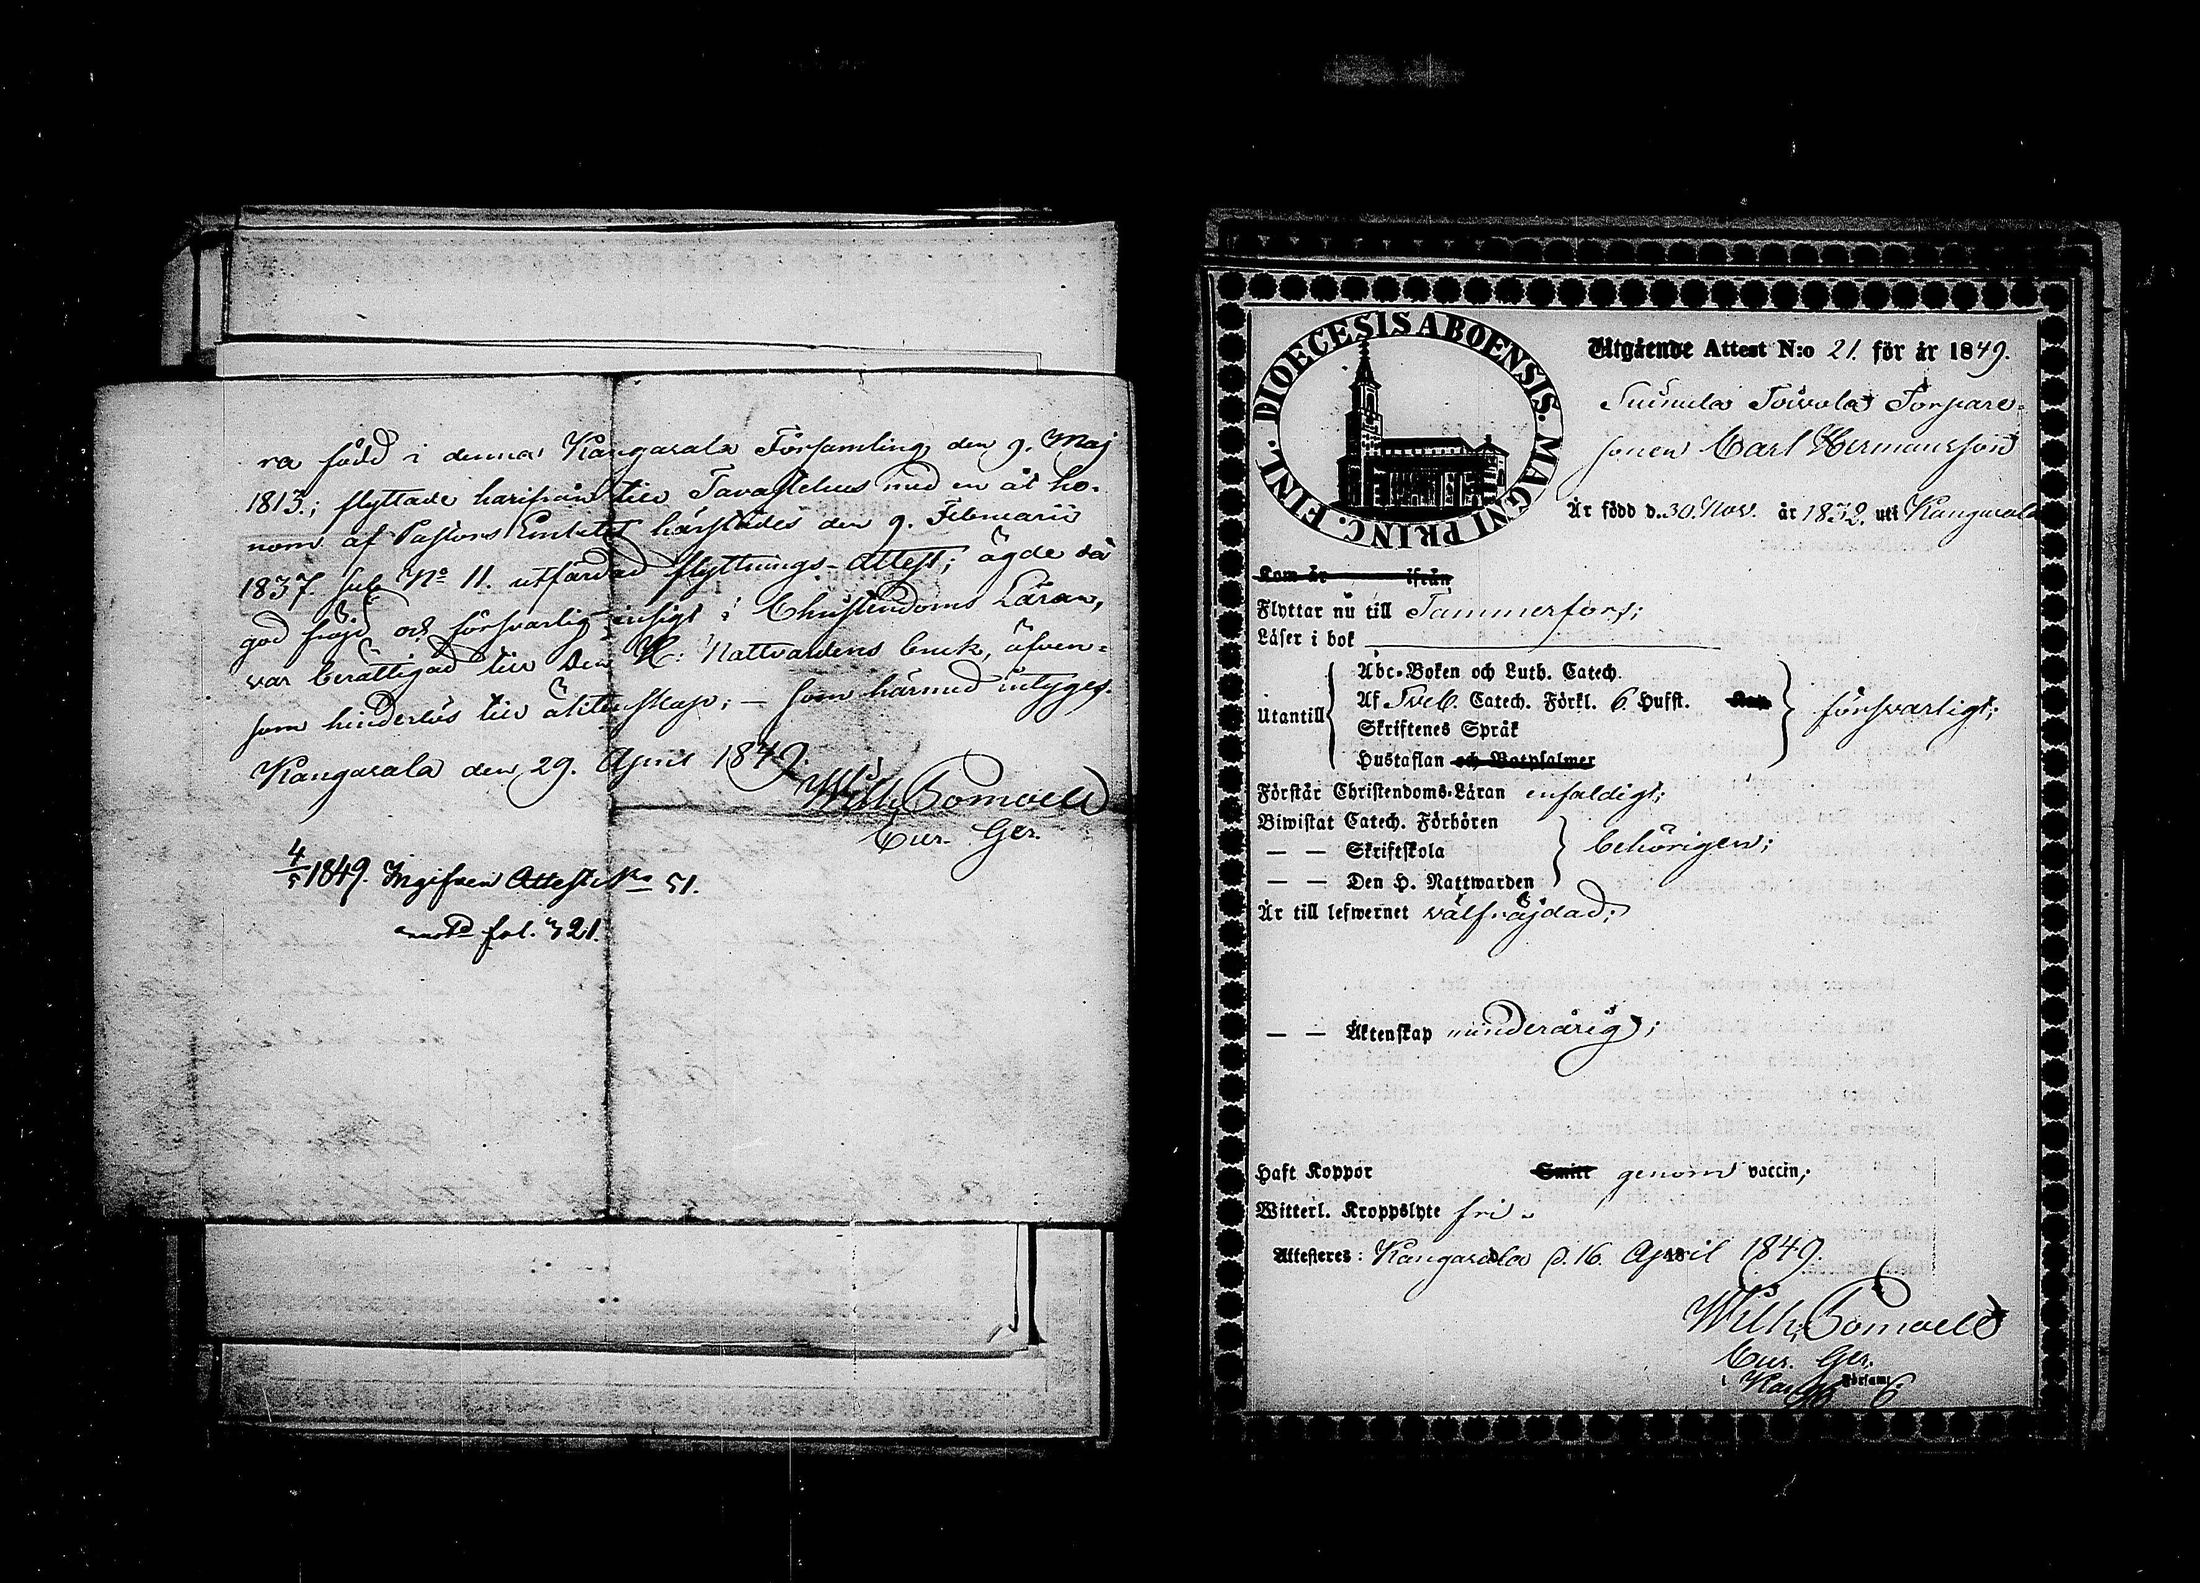 ra född i denna Kangasala Församling den 9. Maj
1813; flyttade härifrån till Tavastehus med en åt ho-
nom af Pastors Embetet härstädes den 9. Februarii
1837. sub No 11. utfärdad flyttnings-attest; ägde då
god fräjd och försvarlig insigt i Christendoms Läran,
var berättigad till den H: Nattvardens bruk, äfven-
som hinderlös till äktenskap; — som härmed intygas.
Kangasala den 29. April 1849.
Cur. Ger.
4/5 1849. Ingifven Attest No 51.
fol. 321.
DIOECESIS ABOENSIS. MAGNI PRINC. FINL.
Utgående Attest N:o 21. för år 1849.
Torpare-
sonen Carl Hermansson
Är född d. 30. Nov. år 1832. uti Kangasala
Kom år ifrån
Flyttar nu till Tammerfors;
Läser i bok
Utantill
Abc-Boken och Luth. Catech.
Af Sveb. Catech. Förkl. 6. Hufst.
Skriftenes Språk
Hustaflan och Botpsalmer
försvarligt;
Förstår Christendoms-Läran enfaldigt;
Biwistat Catech. Förhören
— — Skriftskola
— — Den H. Nattwarden
behörigen;
Är till lefwernet välfräjdad;
— — Äktenskap minderårig;
Haft Koppor Smitt genom vaccin;
Witterl. Kroppslyte fri.
Attesteres: Kangasala d. 16. April 1849.
Cur. Ger.
i Församl.